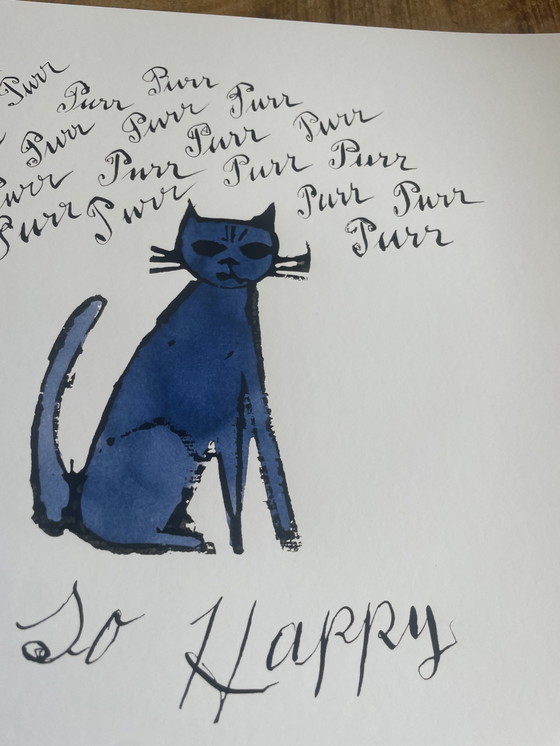 Purr
Purr Purr
Purr Purr Purr
Purr Purr Purr Purr
Purr Purr Purr Purr
Purr Purr
Purr
So Happy